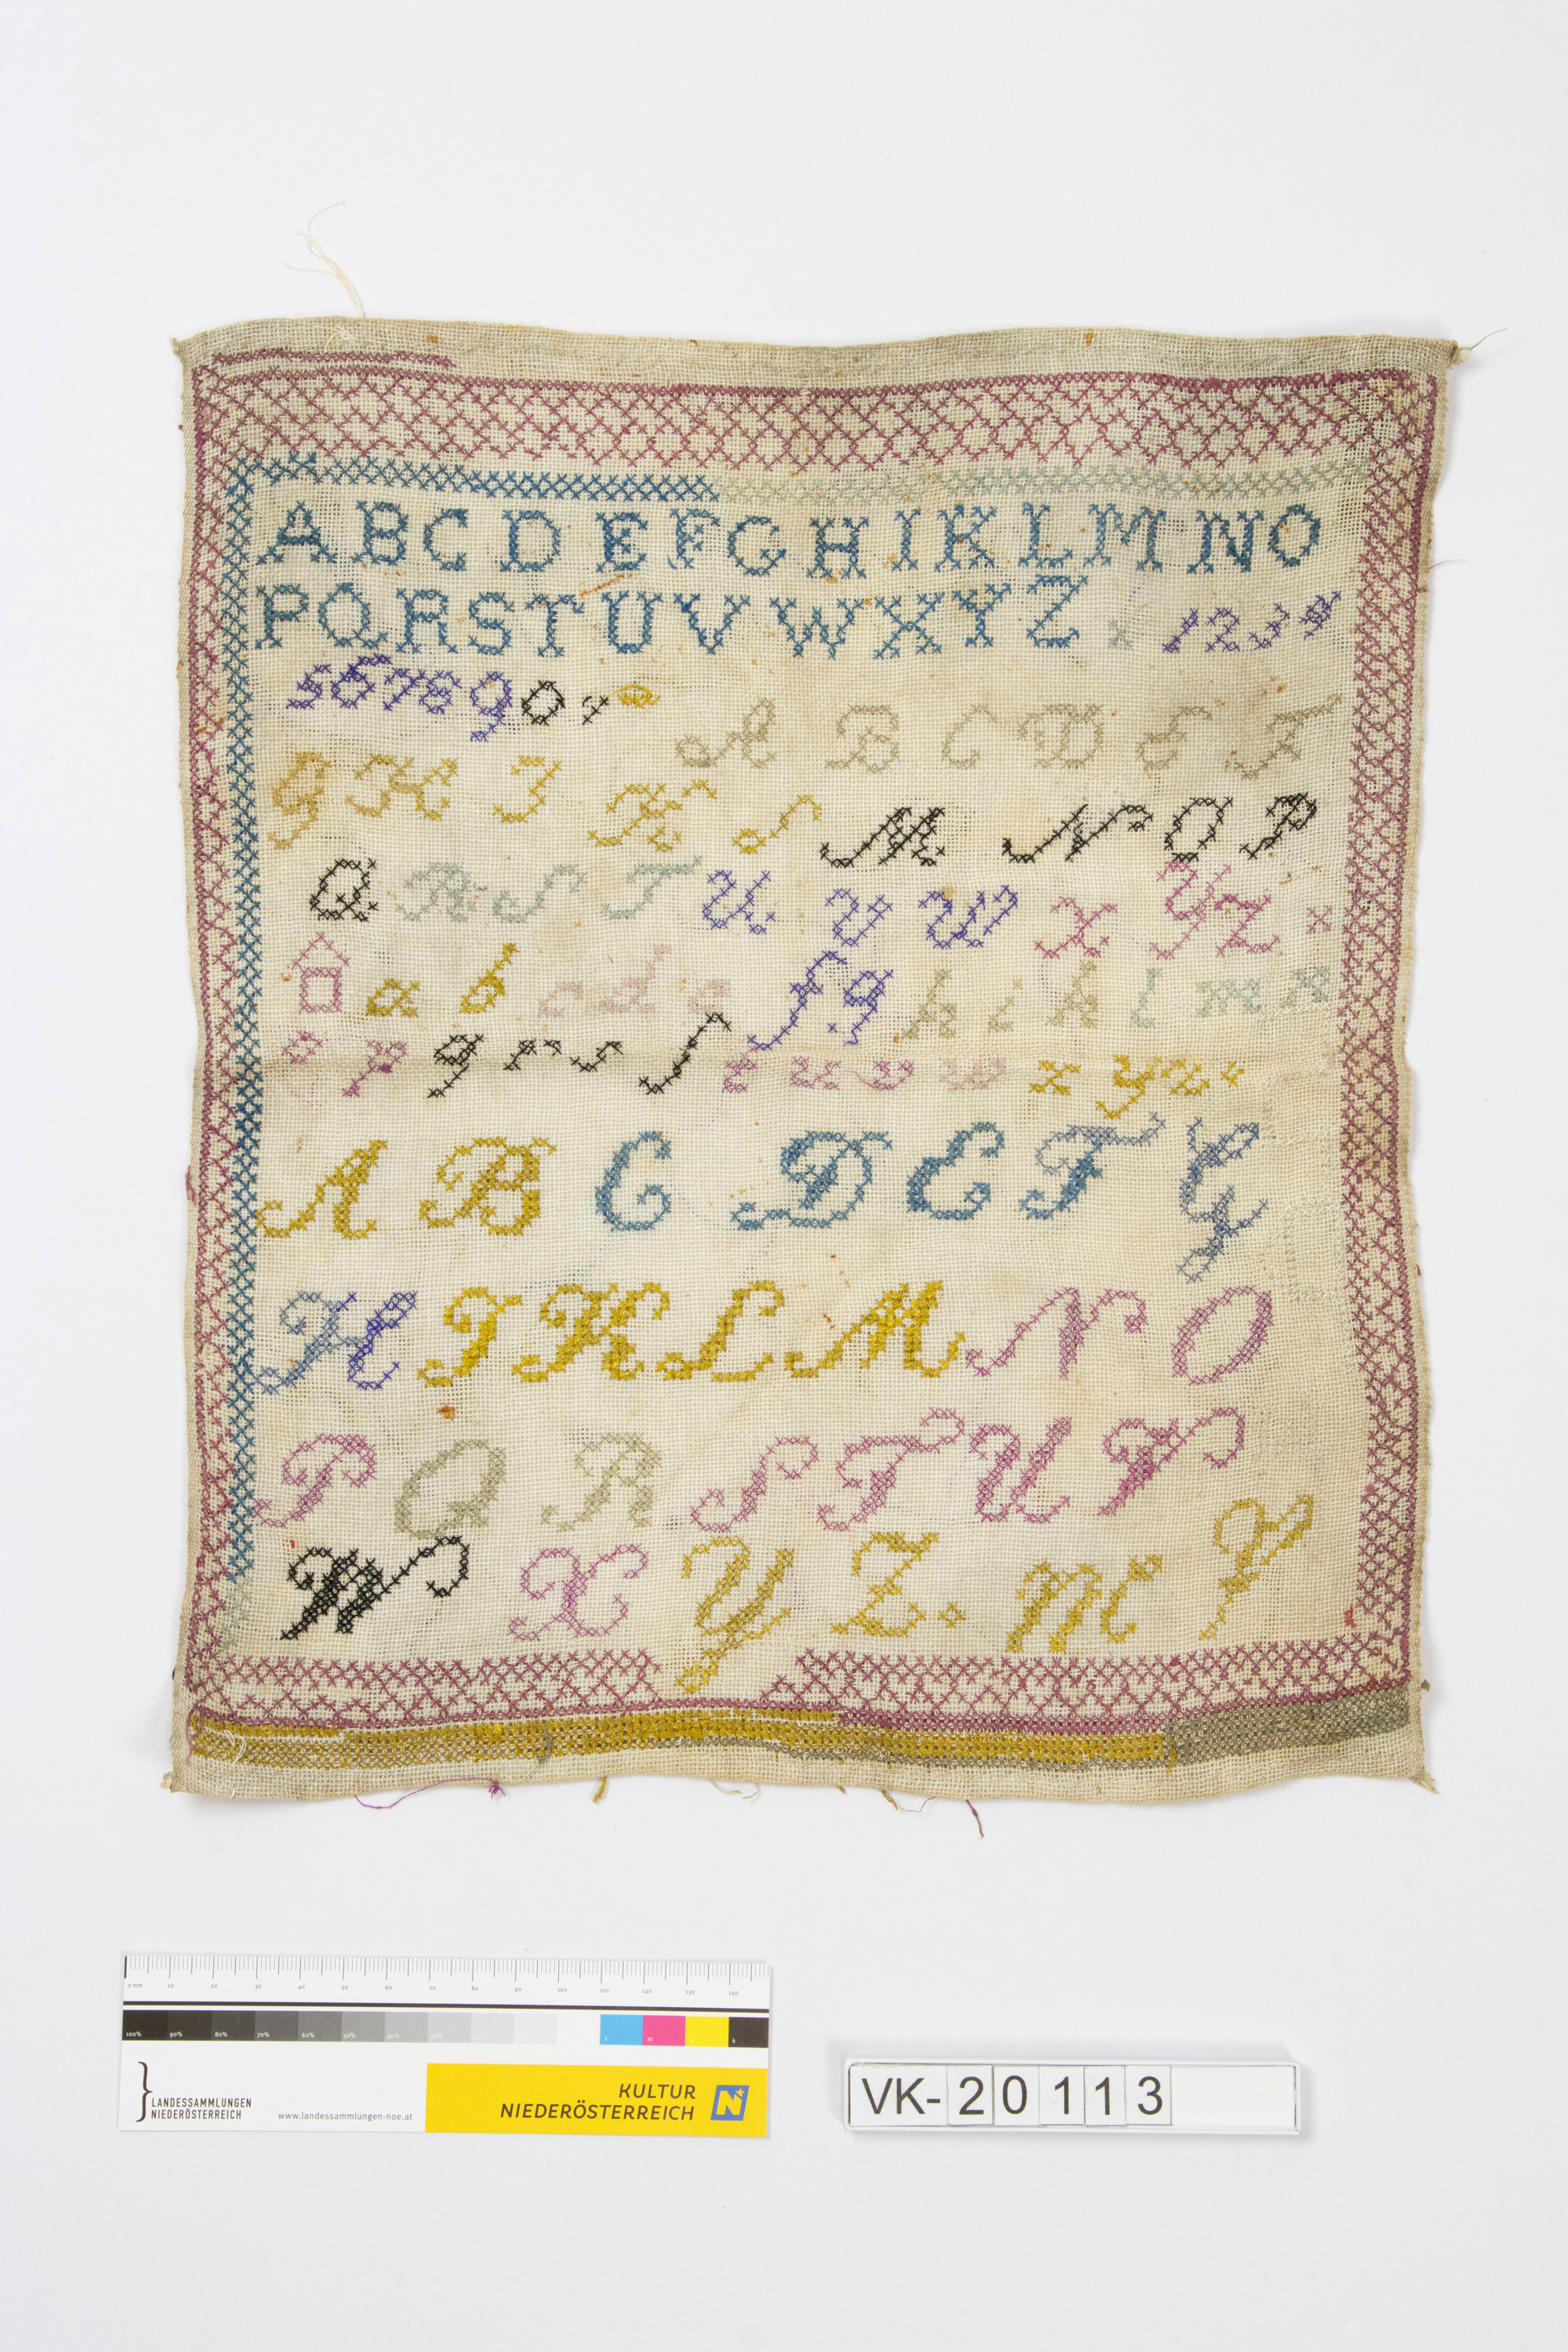 A B C D E F G H I K L M N O
P Q R S T U V W X Y Z x 1 2 3 4
5 6 7 8 9 0
A B C D E F
G H I K L M N O P
Q R S T U V W X Y Z x
a b c d e f g h i k l m n
o p q r s ſ t u v w x y
A B C D E F G
H I K L M N O
P Q R S T U V
W X Y Z . M J
0 mm 10 20 30 40 50 60 70 80 90 100 110 120 130 140
100% 90% 80% 70% 60% 50% 40% c m y k
LANDESSAMMLUNGEN
NIEDERÖSTERREICH
www.landessammlungen-noe.at
KULTUR
NIEDERÖSTERREICH
N
VK-20113